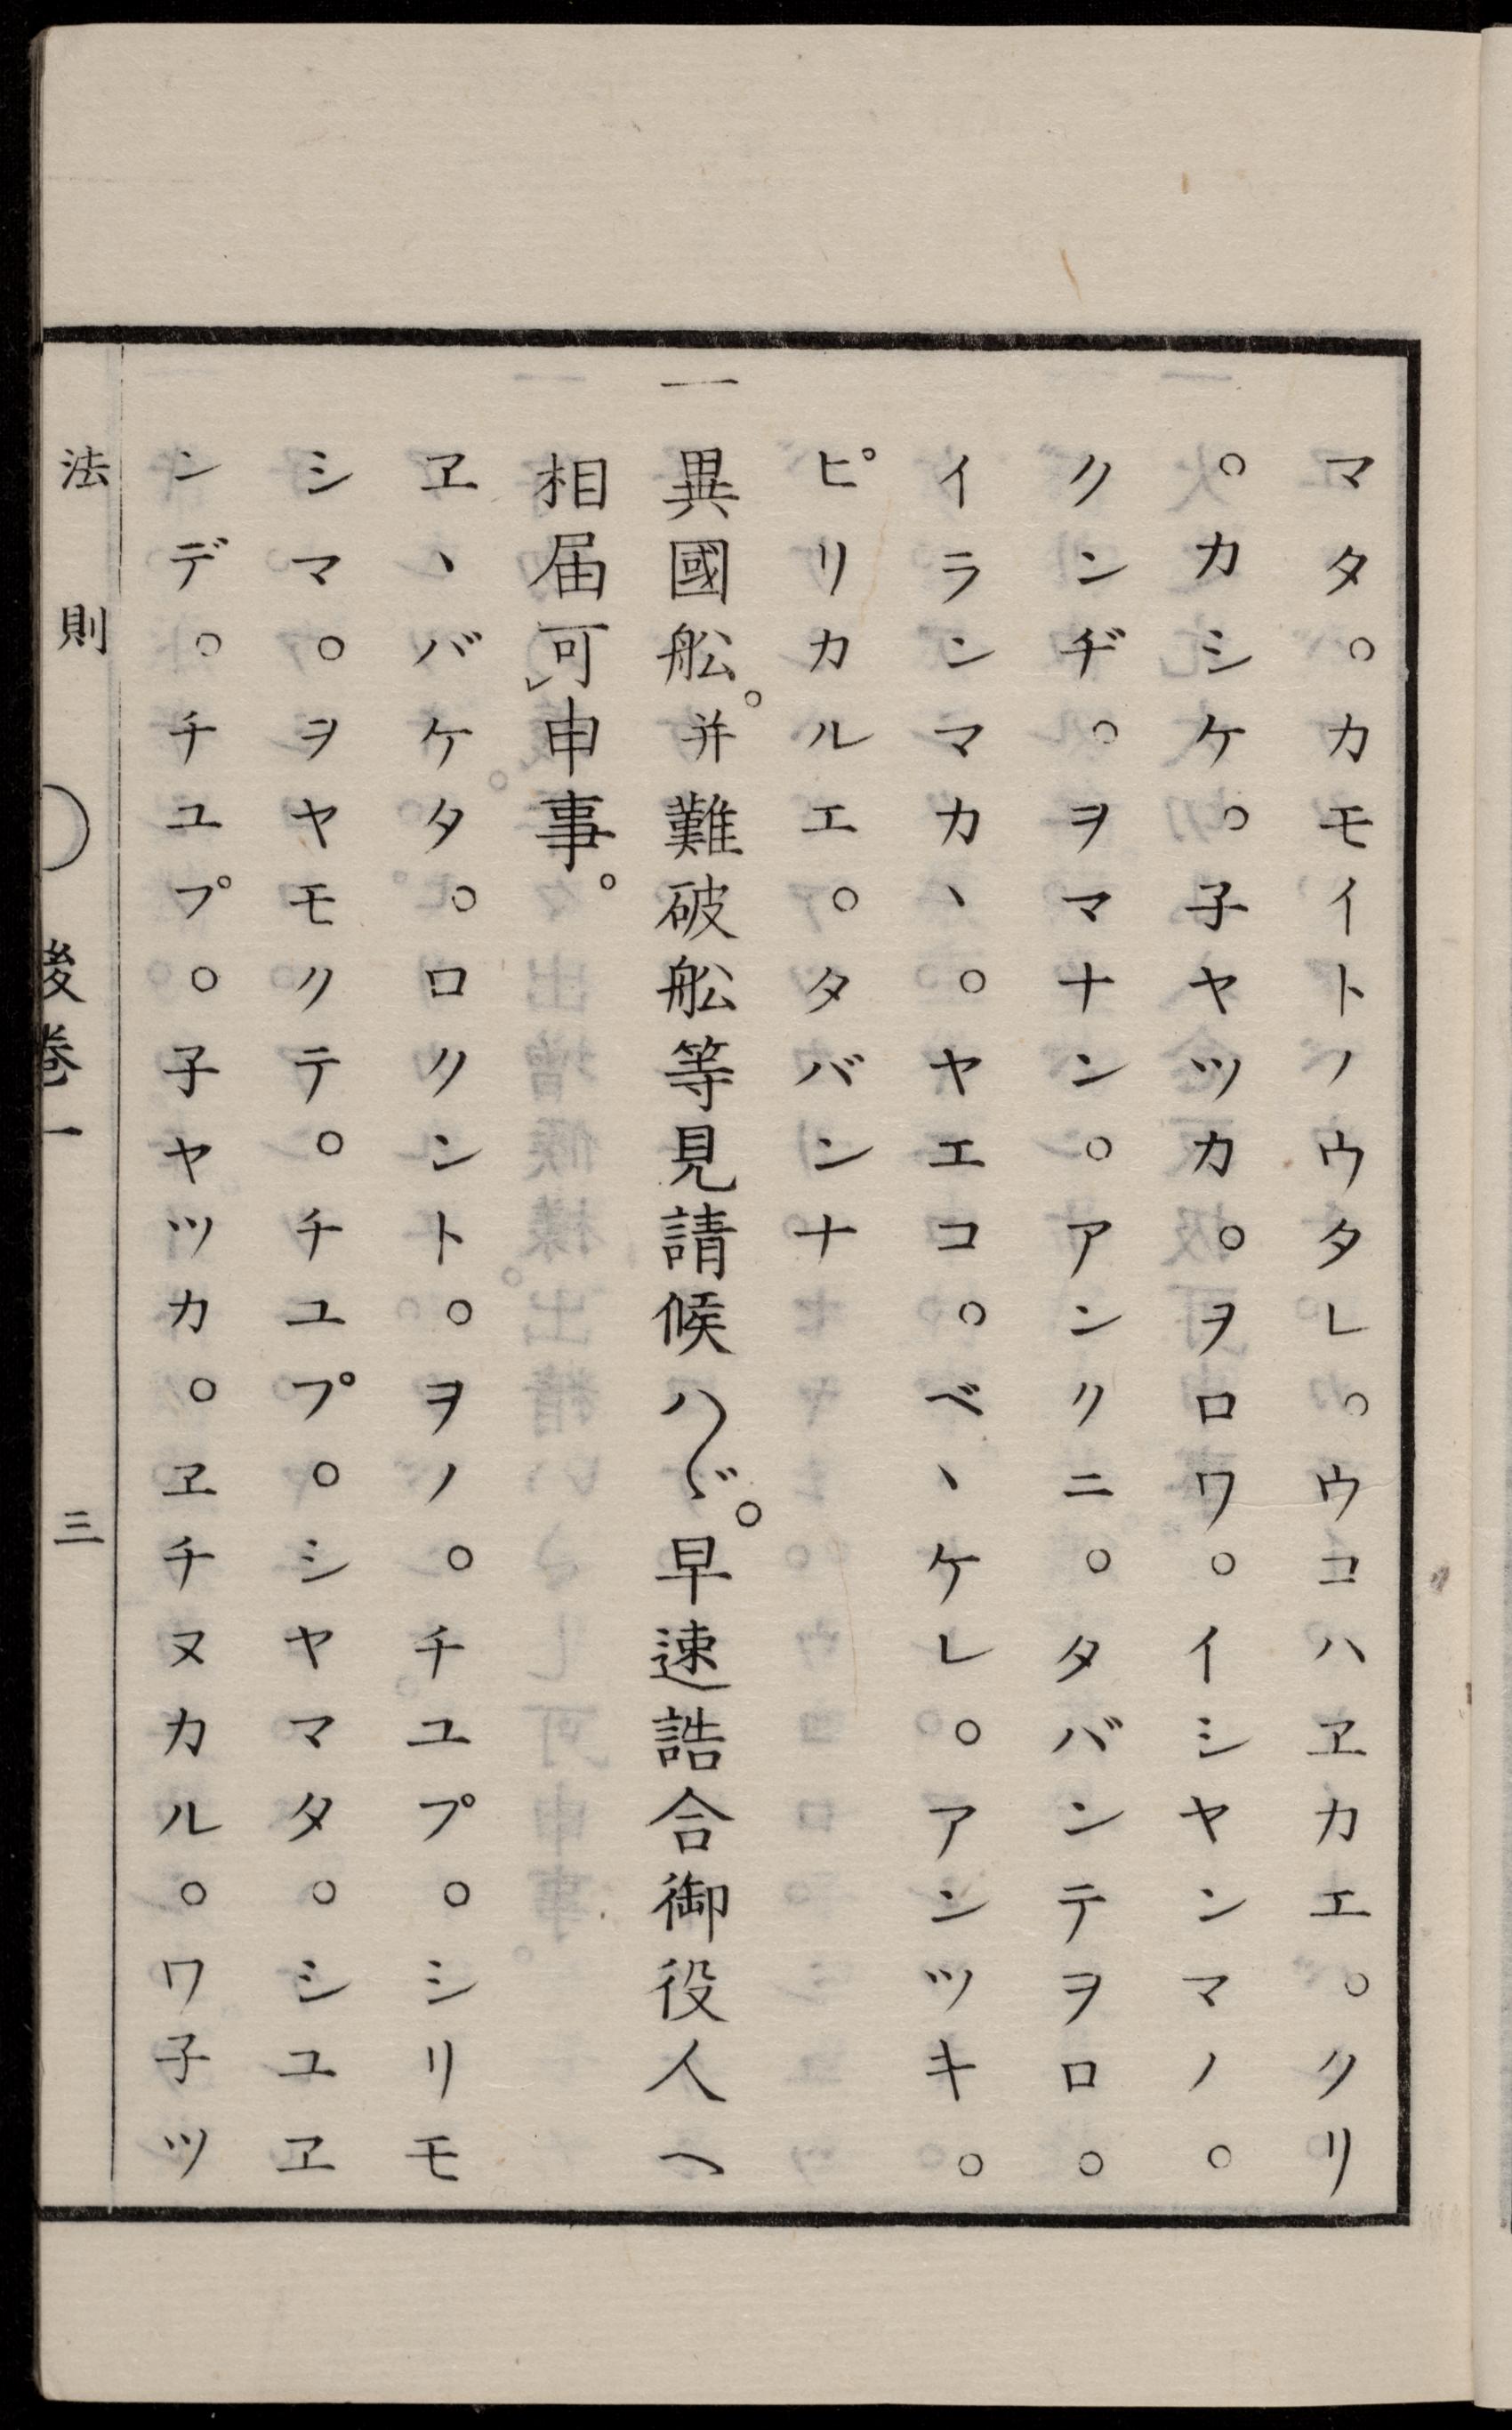 マタ。カモイトノウタレ。ウコハヱカエ。クリ
。カシケ。子ヤツカ。ヲロワ。イシヤンマノ。
クンヂ。ヲマナン。アンクニ。タバンテヲロ。
イランマカヽ。ヤエコ。ベヽケレ。アンツキ。
ピリカルエ。タバンナ
一異國舩。并難破舩等見請候ハヾ。早速誥合御役人へ
相届可㆑申事。
ヱヽバケタ。ロクント。ヲノ。チユプ。シリモ
シマ。ヲヤモクテ。チユプ。シヤマタ。シユヱ
ンデ。チユプ。子ヤツカ。ヱチヌカル。ワ子ツ
法則　後巻一　三